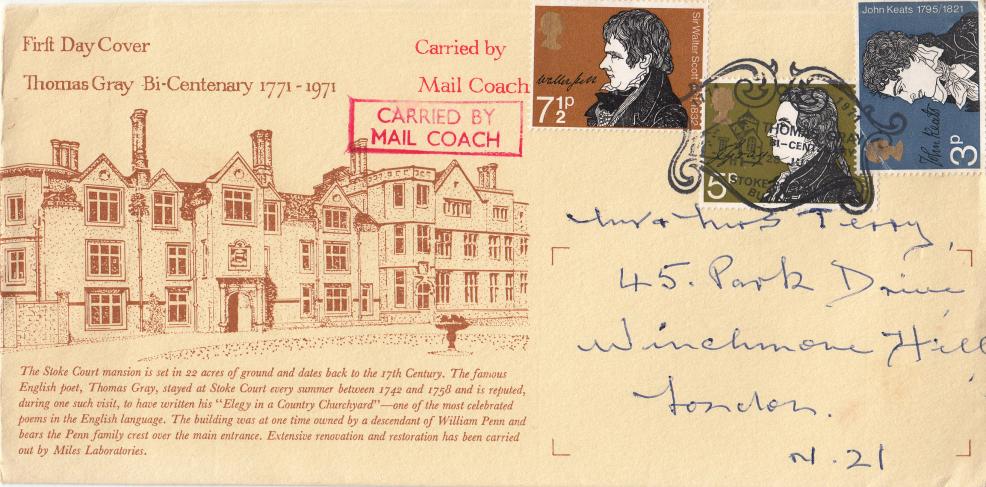 First Day Cover
Thomas Gray Bi-Centenary 1771-1971
Carried by
Mail Coach
CARRIED BY
MAIL COACH
Sir Walter Scott
1832
Walter Scott
7½p
John Keats 1795/1821
John Keats
3p
5p
THOMAS GRAY
BI-CENT
STOKE
Mr & Mrs Terry,
45. Park Drive
Winchmore Hill
London.
N. 21
The Stoke Court mansion is set in 22 acres of ground and dates back to the 17th Century. The famous
English poet, Thomas Gray, stayed at Stoke Court every summer between 1742 and 1758 and is reputed,
during one such visit, to have written his "Elegy in a Country Churchyard"—one of the most celebrated
poems in the English language. The building was at one time owned by a descendant of William Penn and
bears the Penn family crest over the main entrance. Extensive renovation and restoration has been carried
out by Miles Laboratories.